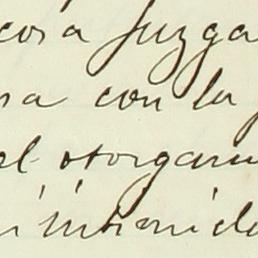 cosa juzga
sa con la
el otorgami
i intimida